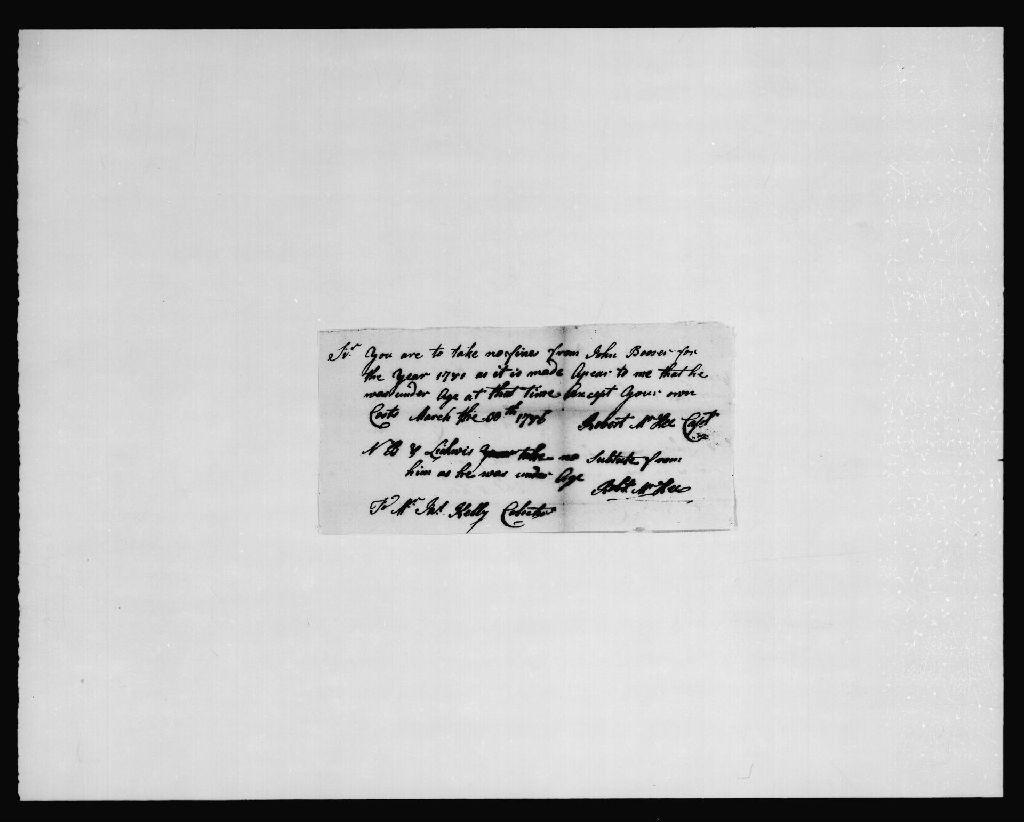 Sr You are to take no fines from John Boser for
the Year 1781 as it is made Apear to me that he
was under Age at that time Except Your own
Costs March the 1786 Robert McKee Capt
N B & Likwis take no Subtute from
him as he was under Age
Robt McKee
To Mr Jno Kelly Colecter